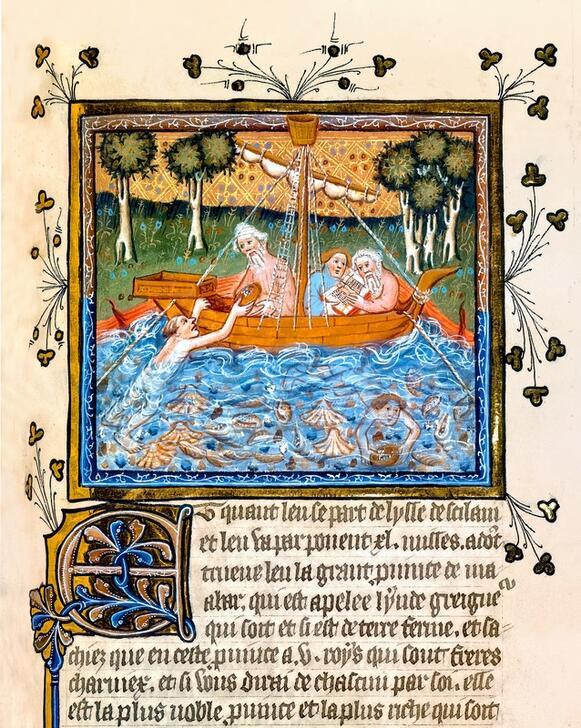 Et quant len se part de lysle de seilam
et len va par ponent .xl. milles. adōt
treuve len la grant puince de ma
abar. qui est apelee lynde greigne²
qui soit et si est de terre ferme. et sa
chiez que en ceste puince a .v. roys qui sont freres
charniex. et si vous dirai de chascun par soi. elle
est la plus noble puince et la plus riche qui soit